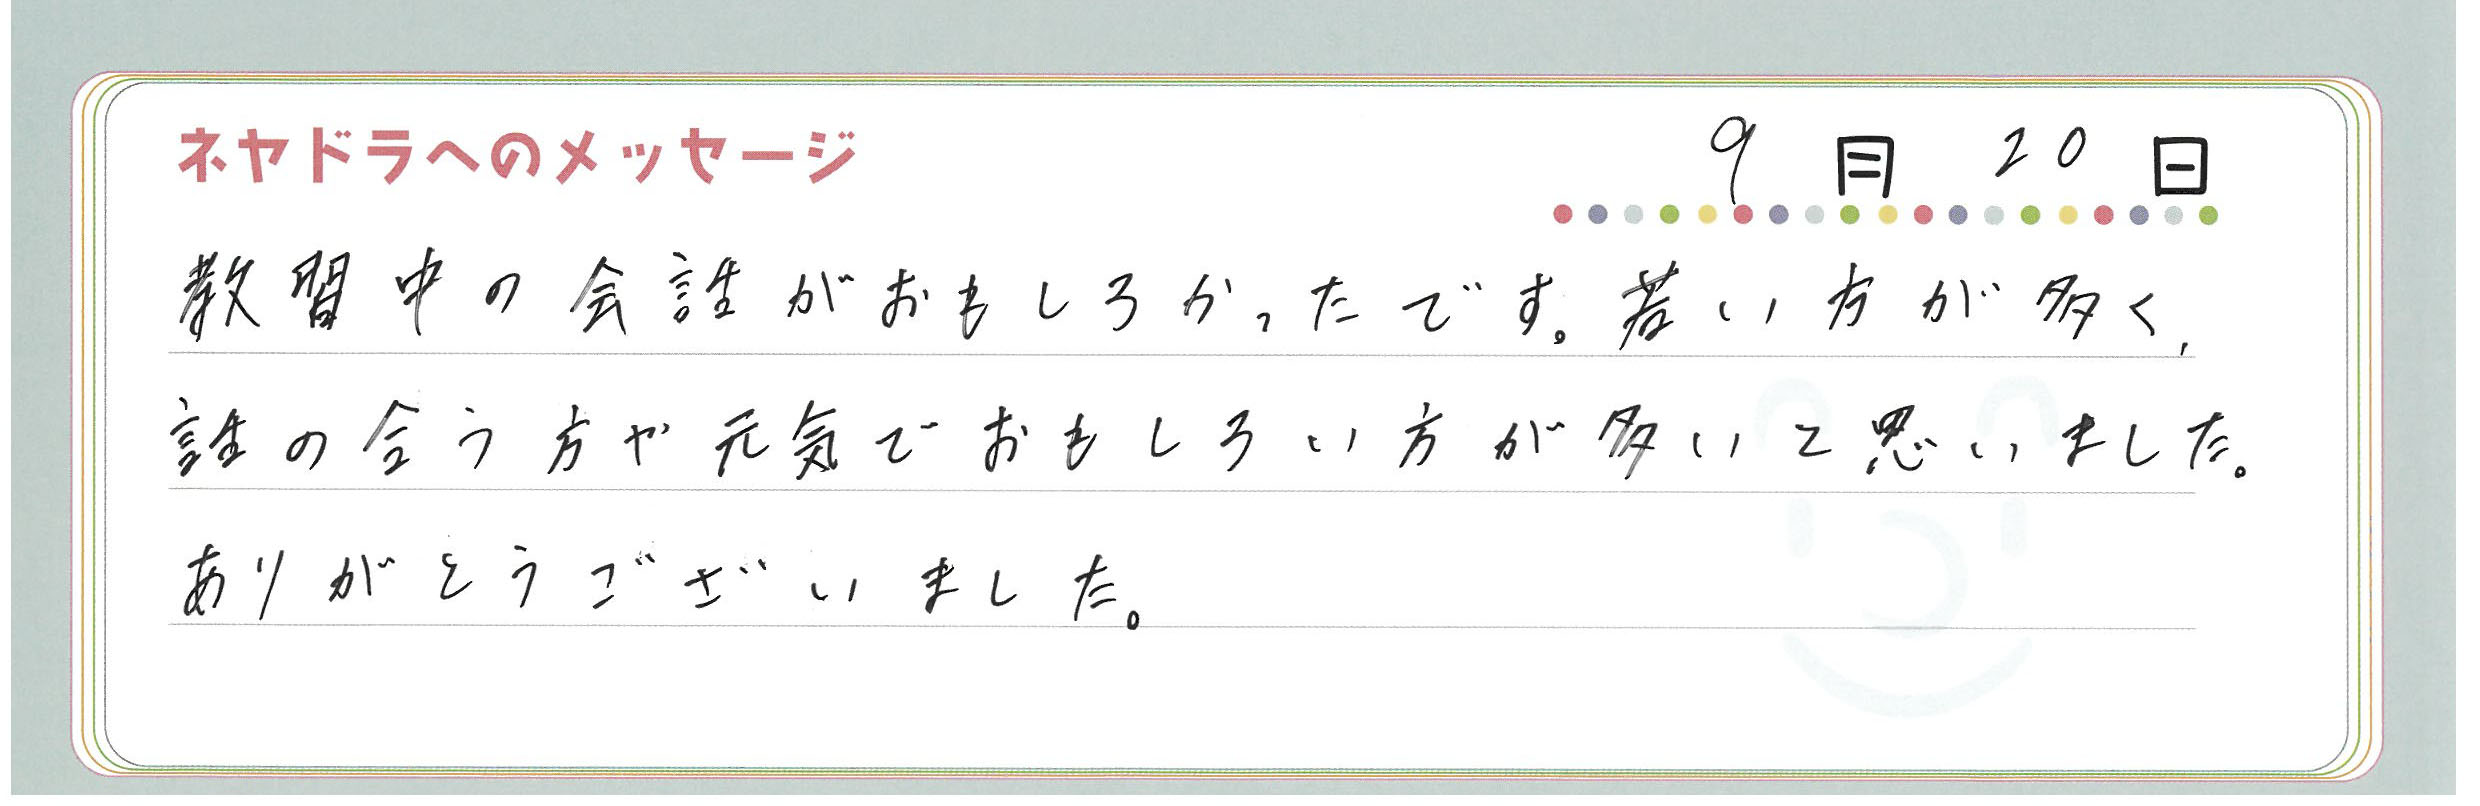 ネヤドラへのメッセージ
9月20日
教習中の会話がおもしろかったです。若い方が多く,
話の合う方や元気でおもしろい方が多いと思いました。
ありがとうございました。